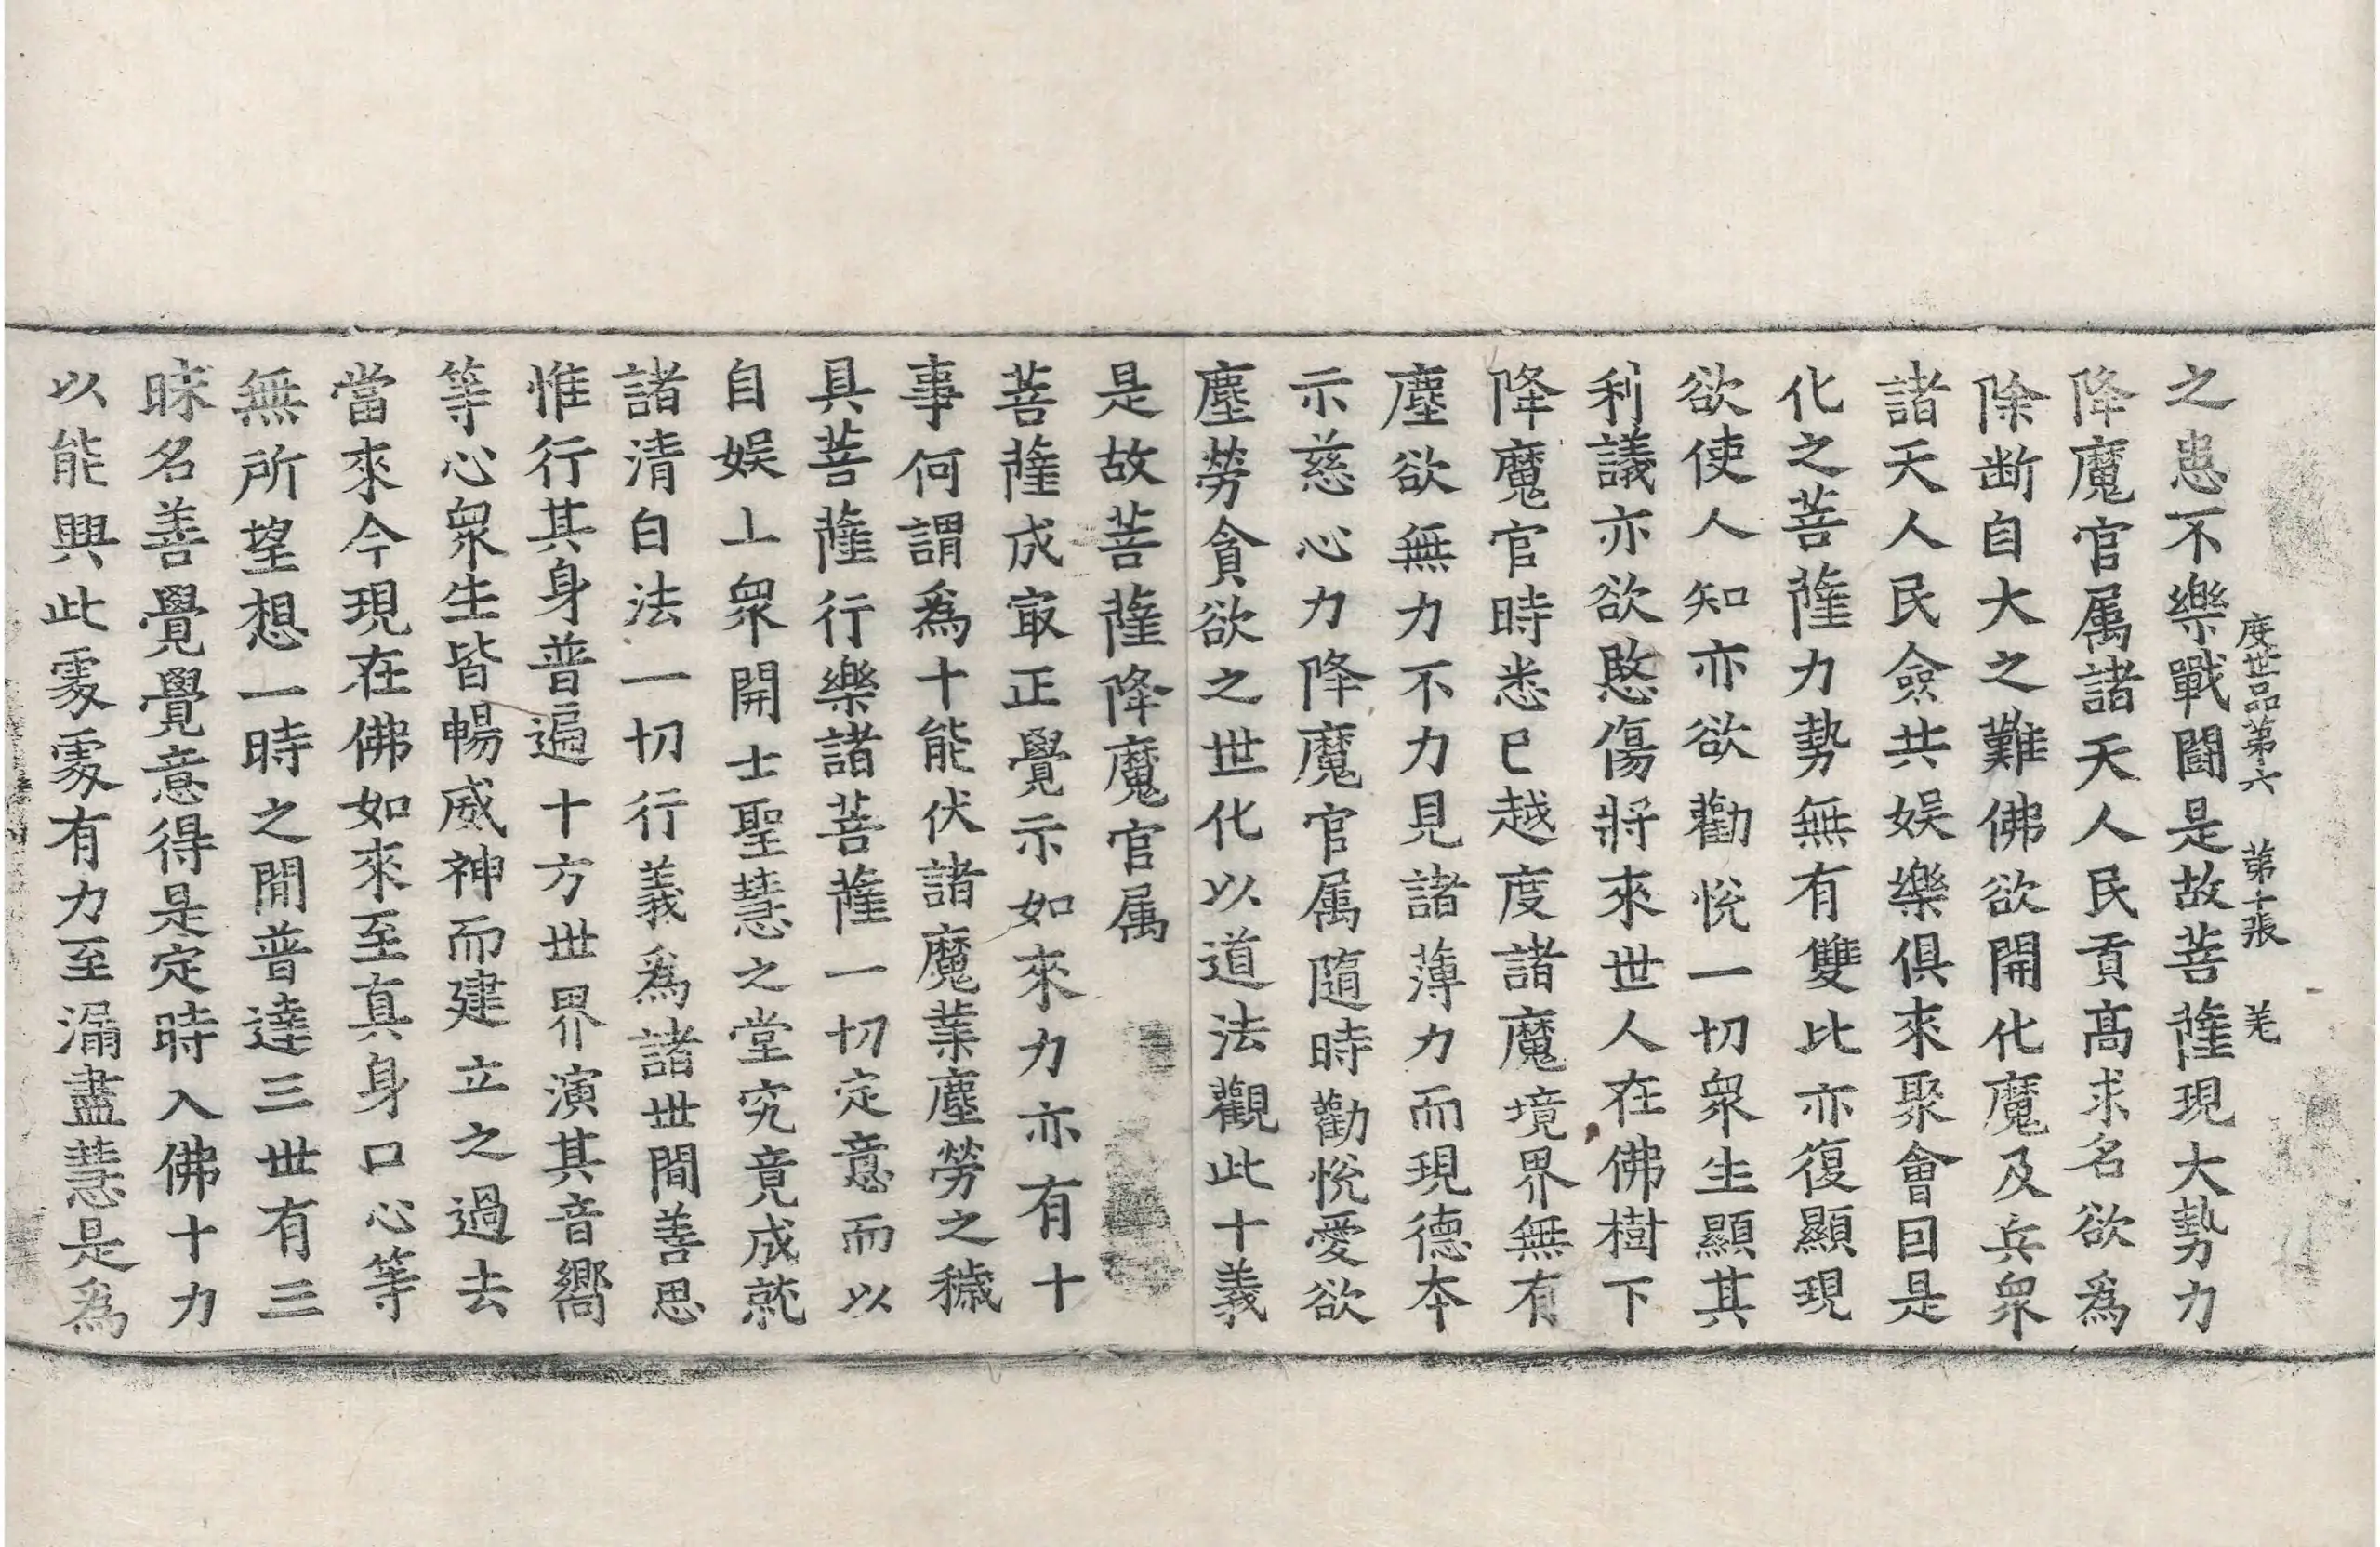 度世品第六　第十張　羌
之患不樂戰鬪是故菩薩現大勢力
降魔官属諸天人民貢髙求名欲爲
除断自大之難佛欲開化魔及兵衆
諸天人民僉共娱樂俱來聚會曰是
化之菩薩力勢無有雙比亦復顯現
欲使人知亦欲勸恱一切衆生顯其
利議亦欲愍傷將來世人在佛樹下
降魔官時悉已越度諸魔境界無有
塵欲無力不力見諸薄力而現德本
示慈心力降魔官属隨時勸恱愛欲
塵勞貪欲之世化以道法觀此十義
是故菩薩降魔官属
菩薩成㝡正覺示如來力亦有十
事何謂爲十能伏諸魔業塵勞之穢
具菩薩行樂諸菩薩一切定意而以
自娱上衆開士聖慧之堂究竟成就
諸清白法一切行義爲諸世間善思
惟行其身普遍十方世界演其音嚮
等心衆生皆暢威神而建立之過去
當來今現在佛如來至真身口心等
無所望想一時之閒普達三世有三
昧名善覺覺意得是定時入佛十力
以能興此䖏䖏有力至漏盡慧是爲